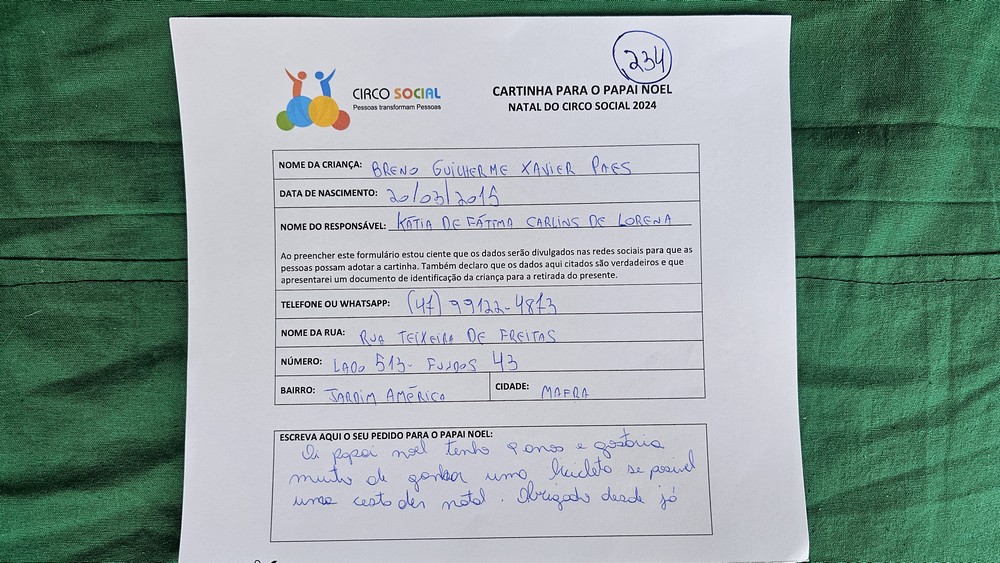 234
CIRCO SOCIAL
Pessoas transformam Pessoas
CARTINHA PARA O PAPAI NOEL
NATAL DO CIRCO SOCIAL 2024
NOME DA CRIANÇA: BRENO GUILHERME XAVIER PAES
DATA DE NASCIMENTO: 20/03/2015
NOME DO RESPONSÁVEL: KÁTIA DE FÁTIMA CARLINS DE LORENA
Ao preencher este formulário estou ciente que os dados serão divulgados nas redes sociais para que as
pessoas possam adotar a cartinha. Também declaro que os dados aqui citados são verdadeiros e que
apresentarei um documento de identificação da criança para a retirada do presente.
TELEFONE OU WHATSAPP: (47) 99122-4873
NOME DA RUA: RUA TEIXEIRA DE FREITAS
NÚMERO: LADO 513- FUNDOS 43
BAIRRO: JARDIM AMÉRICA CIDADE: MAFRA
ESCREVA AQUI O SEU PEDIDO PARA O PAPAI NOEL:
Oi papai noel tenho 9 anos e gostaria
muito de ganhar uma bicicleta se posivel
uma cesta des natal. Obrigado desde já